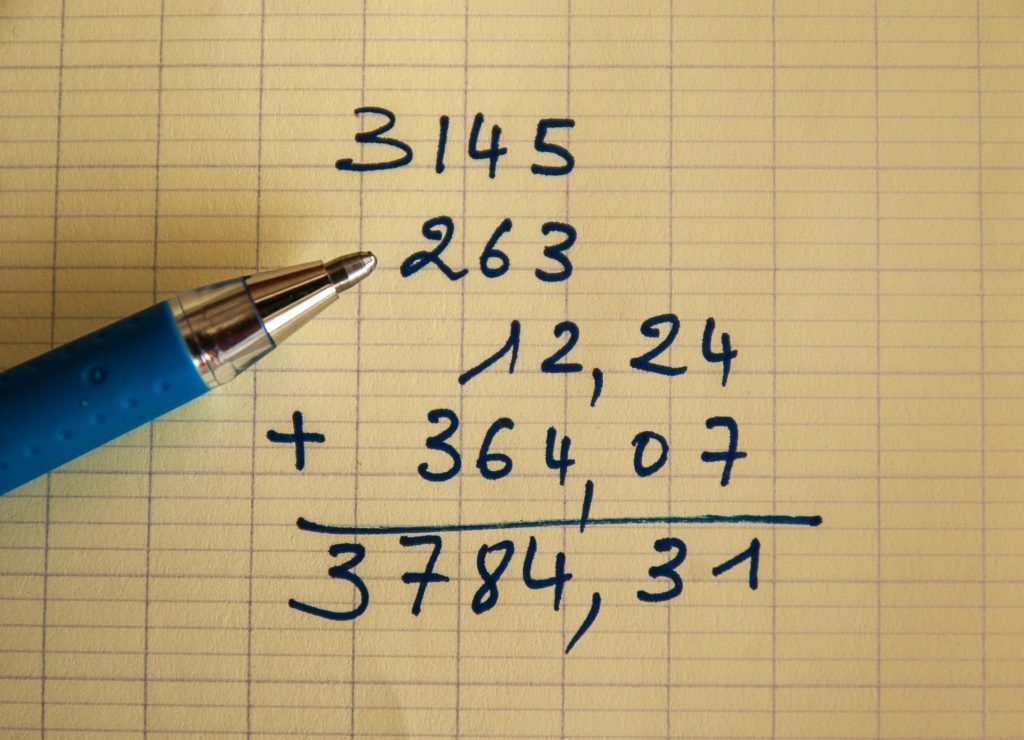 3145
263
12,24
+ 364,07
3784,31